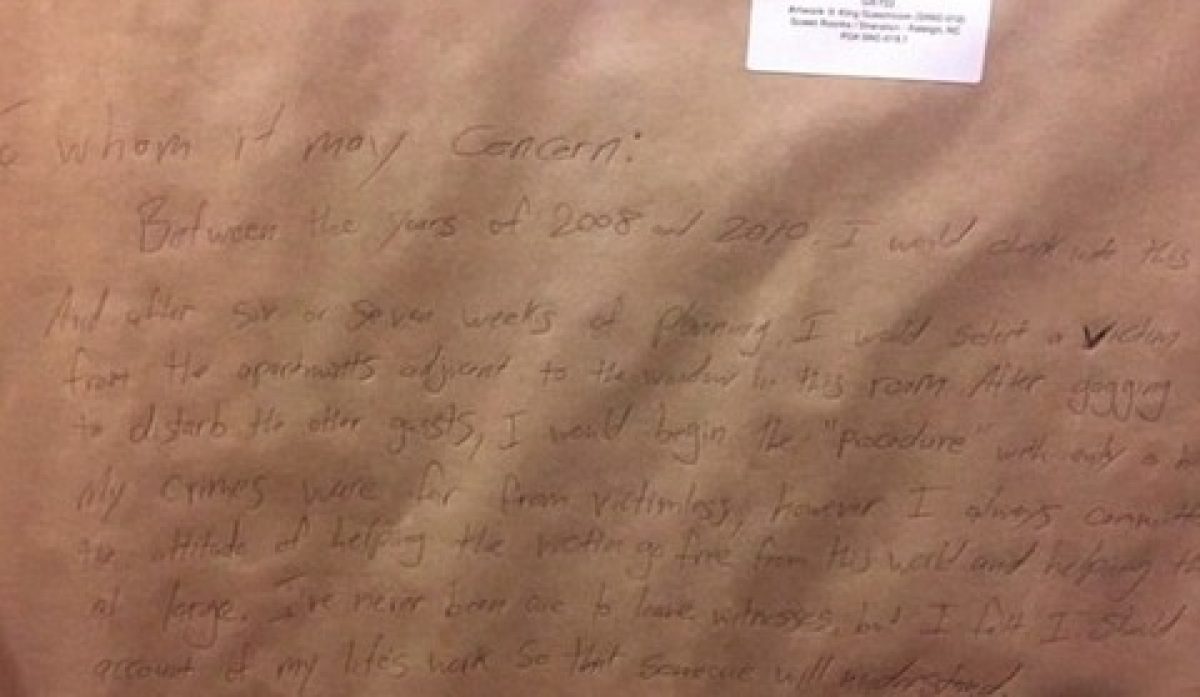 Artwork King Guestroom
Guest Rooms / Sheraton - Raleigh, NC
PO#
whom it may concern:
Between the years of 2008 and 2010, I would check into this
And after six or seven weeks of planning, I would select a victim
from the apartments adjacent to the window in this room. After gagging
to disturb the other guests, I would begin the "procedure" with only a
My crimes were far from victimless, however I always
the attitude of helping the victim go free from this world and helping
at large. I've never been one to leave witnesses, but I felt I should
account of my life's work so that someone will understand